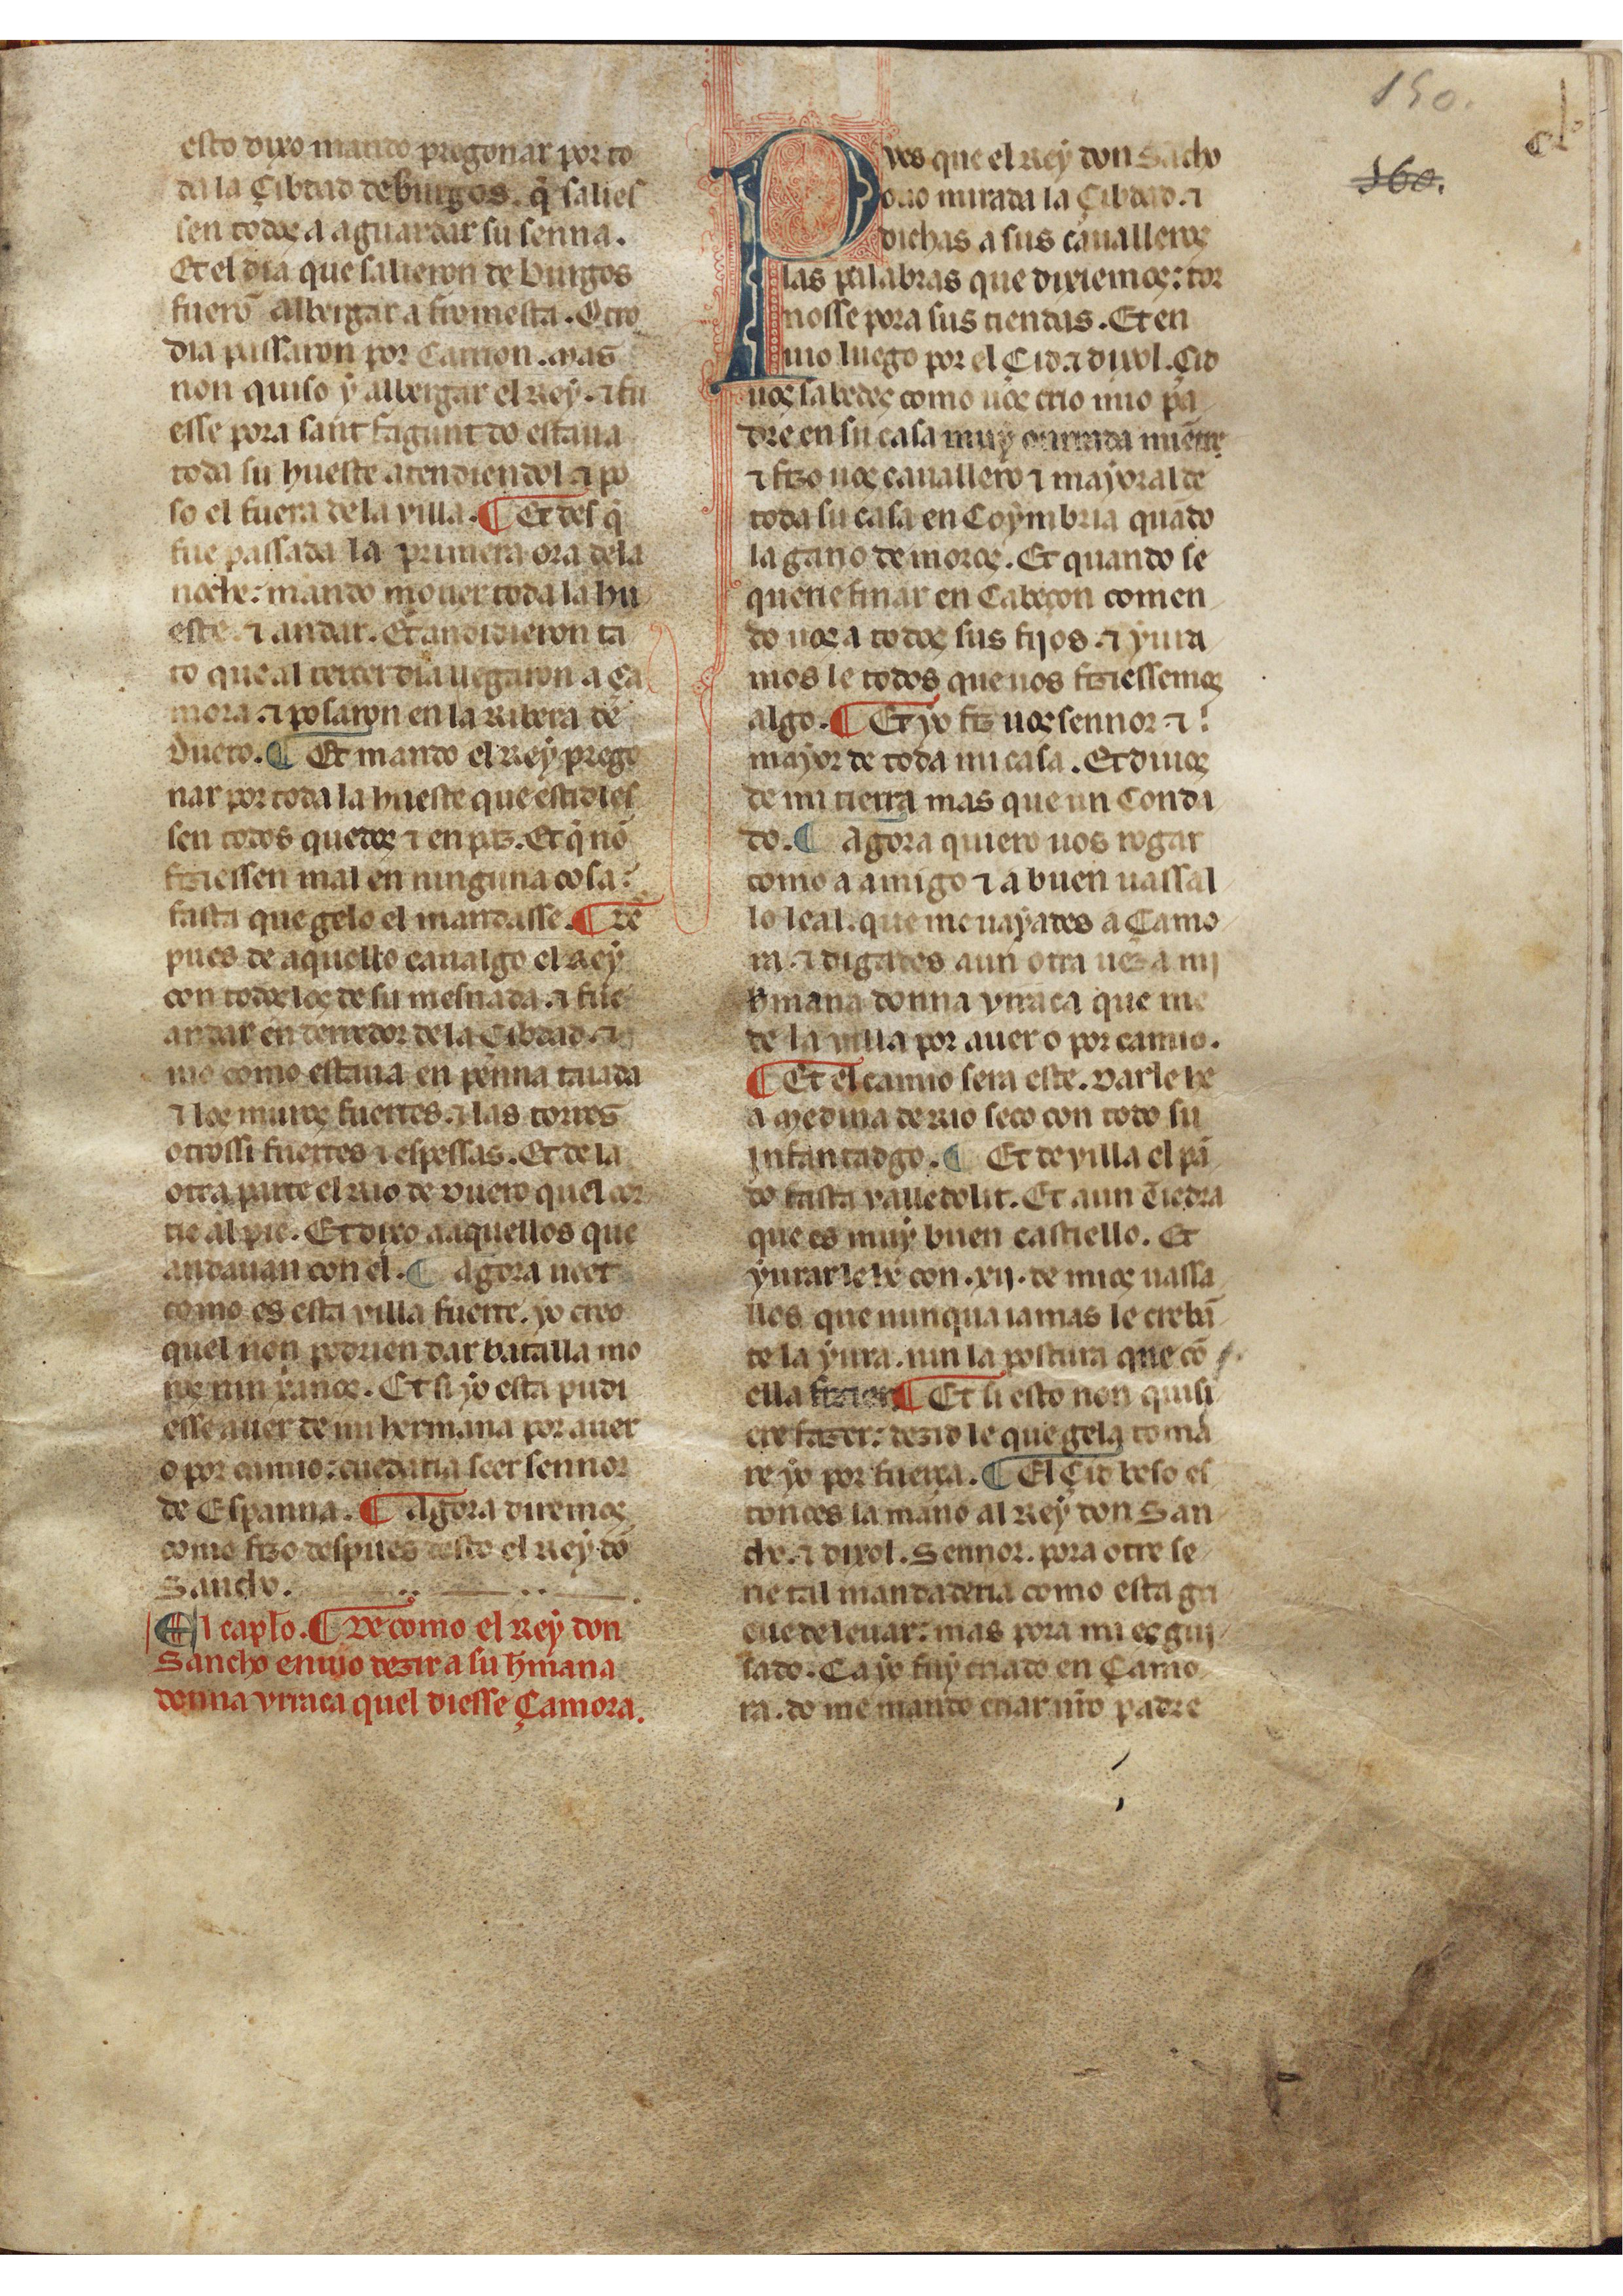 150.
clº
160.
esto dixo mando pregonar por to
da la Çibdad de burgos. q̃ salies
sen todos a aguardar su senna.
Et el dia que salieron de burgos
fuerõ albergar a fromesta. Otro
dia passaron por Carrion. mas
non quiso ẏ albergar el Reẏ. ⁊ fu
esse pora sant fagunt do estaua
toda su hueste atendiendol. ⁊ po
so el fuera de la villa. ¶ Et des q̃
fue passada la primera ora dela
noche: mando mouer toda la hu
este. ⁊ andar. Et andidieron tã
to que al tercer dia llegaron a Ça
mora. ⁊ posaron en la Ribera de
duero. ¶ Et mando el Reẏ prego
nar por toda la hueste que estidies
sen todos quedos ⁊ en paz. Et q̃ nõ
fiziessen mal en ninguna cosa:
fasta que gelo el mandasse. ¶ des
pues de aquello caualgo el Reẏ
con todos los de su mesnada. ⁊ fue
andar en derredor de la Çibdad. ⁊
uio como estaua en penna taiada
⁊ los muros fuertes. ⁊ las torres
otrossi fuertes ⁊ espessas. Et de la
otra parte el Rio de duero quel cor
rie al pie. Et dixo a aquellos que
andauan con el. ¶ Agora ueet
como es esta villa fuerte. yo creo
quel non podrien dar batalla mo
ros nin xanos. Et si ẏo esta pudi
esse auer de mi hermana por auer
o por camio: cuedaria seer sennor
de Espanna. ¶ Agora diremos
como fizo despues desto el Reẏ dõ
Sancho.
El caplo. ¶ De como el Reẏ don
Sancho enuio dezir a su hmana
donna vrraca quel diesse Çamora.
Pves que el Reẏ don Sãcho
ouo mirada la Çibdad. ⁊
dichas a sus caualleros
las palabras que dixiemos: tor
nosse pora sus tiendas. Et en
uio luego por el Çid. ⁊ dixol. Çid
uos sabedes como uos crio mio pa
dre en su casa muẏ onrrada miẽtre
⁊ fizo uos cauallero ⁊ maẏoral de
toda su casa en Coẏmbria quãdo
la gano de moros. Et quando se
querie finar en Cabeçon comen
do uos a todos sus fijos. ⁊ ẏura
mos le todos que uos fiziessemos
algo. ¶ Et ẏo fiz uos sennor ⁊
maẏor de toda mi casa. Et diuos
de mi tierra mas que un Conda
do. ¶ Agora quiero uos rogar
como a amigo ⁊ a buen uassal
lo leal. que me uaẏades a Çamo
ra. ⁊ digades aun otra uez a mi
hmana donna vrraca que me
de la villa por auer o por camio.
¶ Et el camio sera este. Darle he
a Medina de Rio seco con todo su
infantadgo. ¶ Et de villa el pã
do fasta valledolit. Et aun Tiedra
que es muẏ buen castiello. Et
ẏurarle he con .xij. de mios uassa
llos que nunqua iamas le crebã
te la ẏura. nin la postura que cõ
ella fiziere ¶ Et si esto non quisi
ere fazer: dezid le que gela toma
re ẏo por fuerça. ¶ El Çid beso es
tonces la mano al Reẏ don San
cho. ⁊ dixol. Sennor. pora otre se
rie tal mandaderia como esta gra
cue de leuar: mas pora mi es gui
sado. Ca ẏo fuẏ criado en Çamo
ra. do me mando criar mio padre